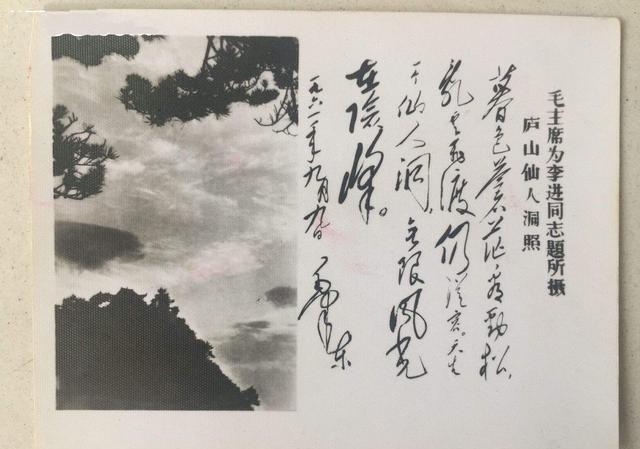 毛主席为李进同志题所摄
庐山仙人洞照
暮色苍茫看劲松，
乱云飞渡仍从容。天生
一个仙人洞，无限风光
在险峰。
一九六一年九月九日
毛泽东